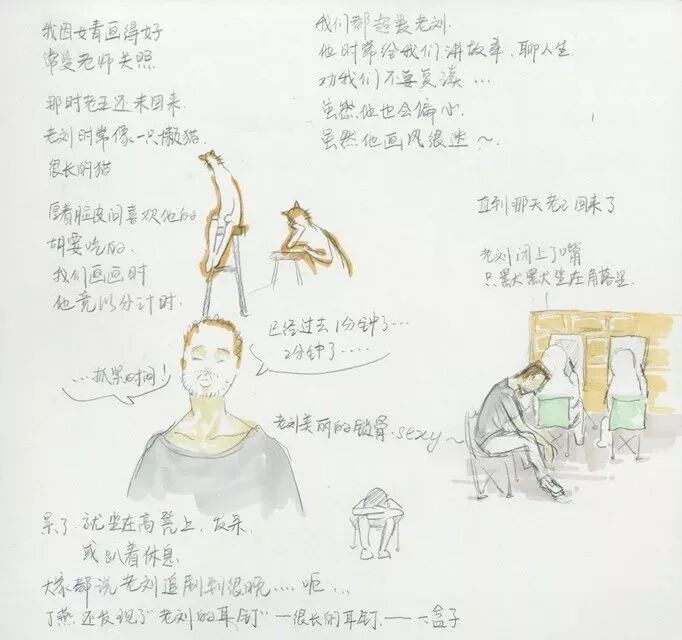 我因女青画得好
常受老师关照
那时老王还来回来
老刘时常像一只懒猫
很长的猫
厚着脸皮问喜欢他的
胡要吃的.
我们画画时
他竟以分计时.
我们都超爱老刘.
他时常给我们讲故事、聊人生
劝我们不要复读…
虽然他也会偏心
虽然他画风很迷～
直到那天老王回来了
老刘闭上了嘴
只默默坐在角落里.
已经过去1分钟了…
2分钟了….
…抓紧时间!
老刘美丽的锁骨.sexy～
呆了.就坐在高凳上.发呆
或趴着休息
大家都说老刘追剧到很晚….呃…
丁燕还发现了"老刘的耳钉"一很长的耳钉——一盒子